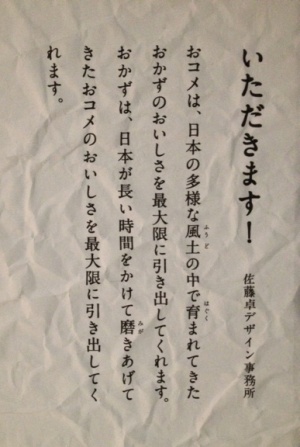 いただきます！ 佐藤卓デザイン事務所
おコメは、日本の多様な風土の中で育まれてきた
おかずのおいしさを最大限に引き出してくれます。
おかずは、日本が長い時間をかけて磨きあげて
きたおコメのおいしさを最大限に引き出してく
れます。